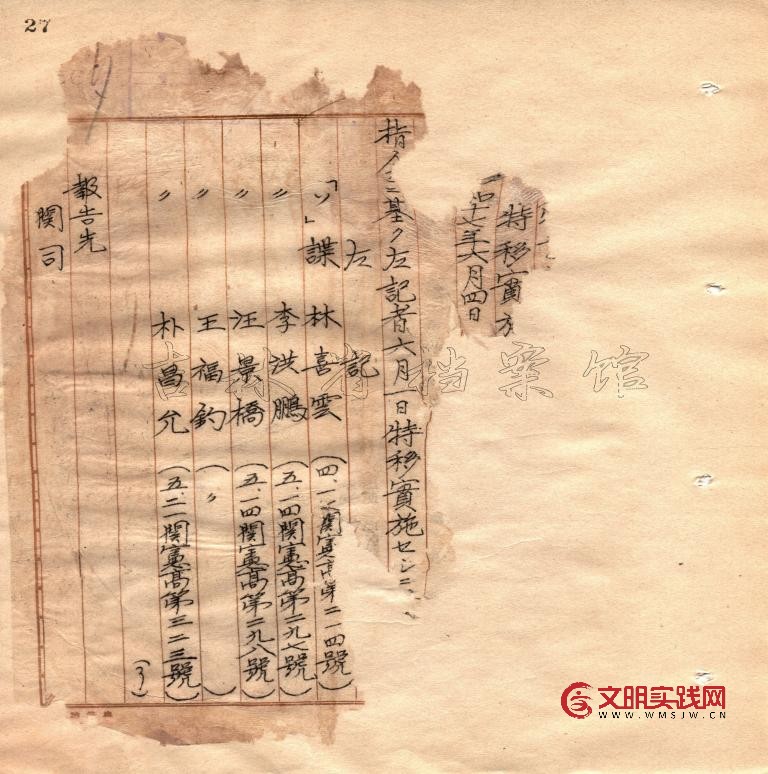 27
特移實
十七年六月四日
指令ニ基ク左記者六月一日特移實施セシニ
左記
「ソ」諜 林喜雲(四、一 関憲高第二一四號)
〃 李洪鵬(五、一四関憲高第二九七號)
〃 汪景橋(五、一四関憲高第二九八號)
〃 王福鈞(〃)
〃 朴昌允(五、二一関憲高第三二三號)
(了)
報告先
関司
吉林省档案馆
文明实践网
WWW.WMSJW.CN